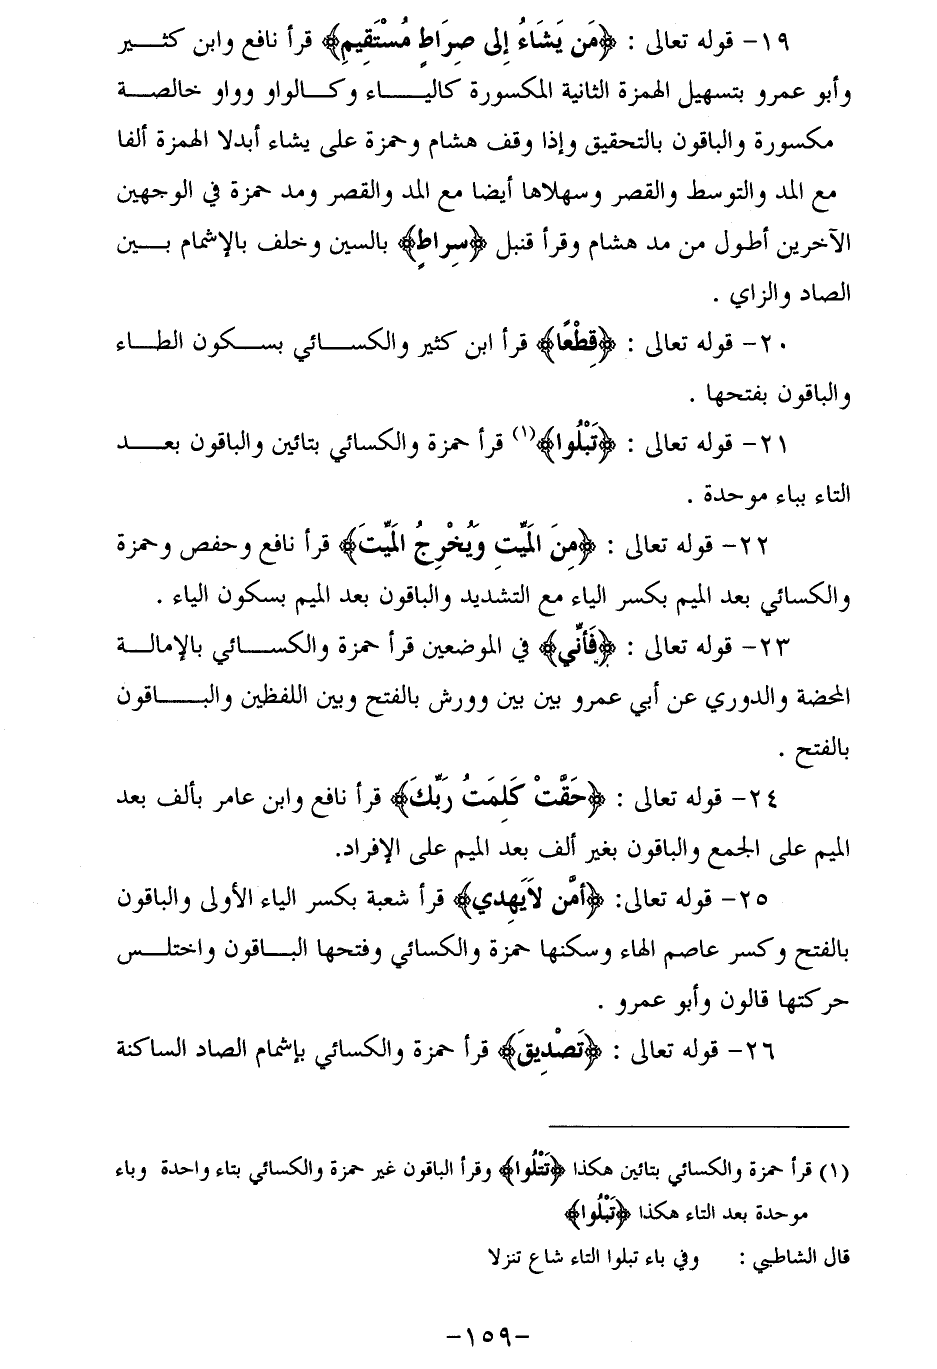 ١٩- قوله تعالى : ﴿مَن يَشَاءُ إِلى صِرَاطٍ مُسْتَقِيمٍ﴾ قرأ نافع وابن كثير
وأبو عمرو بتسهيل الهمزة الثانية المكسورة كالياء وكالواو وواو خالصة
مكسورة والباقون بالتحقيق وإذا وقف هشام وحمزة على يشاء أبدلا الهمزة ألفا
مع المد والتوسط والقصر وسهلاها أيضا مع المد والقصر ومد حمزة في الوجهين
الآخرين أطول من مد هشام وقرأ قنبل ﴿سِراطٍ﴾ بالسين وخلف بالإشمام بين
الصاد والزاي .
٢٠- قوله تعالى : ﴿قِطْعًا﴾ قرأ ابن كثير والكسائي بسكون الطاء
والباقون بفتحها .
٢١- قوله تعالى : ﴿تَبْلُوا﴾(١) قرأ حمزة والكسائي بتائين والباقون بعد
التاء بباء موحدة .
٢٢- قوله تعالى : ﴿مِنَ الَميِّتِ وَيُخْرِجُ الَميِّتَ﴾ قرأ نافع وحفص وحمزة
والكسائي بعد الميم بكسر الياء مع التشديد والباقون بعد الميم بسكون الياء .
٢٣- قوله تعالى : ﴿فَأَنِّي﴾ في الموضعين قرأ حمزة والكسائي بالإمالة
المحضة والدوري عن أبي عمرو بين بين وورش بالفتح وبين اللفظين والباقون
بالفتح .
٢٤- قوله تعالى : ﴿حَقَّتْ كَلِمَتُ رَبِّكَ﴾ قرأ نافع وابن عامر بألف بعد
الميم على الجمع والباقون بغير ألف بعد الميم على الإفراد.
٢٥- قوله تعالى: ﴿أمَّن لاَيَهِدي﴾ قرأ شعبة بكسر الياء الأولى والباقون
بالفتح وكسر عاصم الهاء وسكنها حمزة والكسائي وفتحها الباقون واختلس
حركتها قالون وأبو عمرو .
٢٦- قوله تعالى : ﴿تَصْدِيقَ﴾ قرأ حمزة والكسائي بإشمام الصاد الساكنة
(١) قرأ حمزة والكسائي بتائين هكذا ﴿تَتْلُوا﴾ وقرأ الباقون غير حمزة والكسائي بتاء واحدة وباء
موحدة بعد التاء هكذا ﴿تَبْلُوا﴾
قال الشاطبي : وفي باء تبلوا التاء شاع تنزلا
-١٥٩-